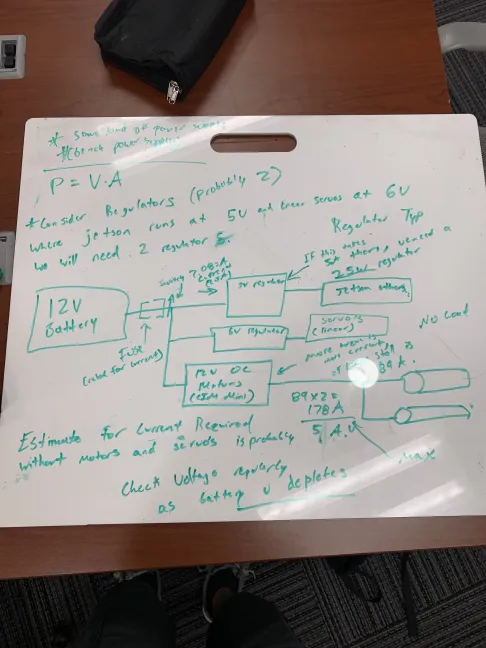 * some kind of power supply
* (bench power supply)
P = V·A
* Consider Regulators (probably 2)
where jetson runs at 5V and linear servos at 6V
we will need 2 regulators.
Regulator Typ
If this uses
5A then, we need a
25W regulator
12V
Battery
5V regulator
Jetson
6V regulator
servos
(linear)
12V DC
Motors
(CIM Mini)
Fuse
(rated for current)
more
more current
stall is
89 A.
No Load
89 x 2 =
178 A
5 A.
Max
Estimate for Current Required
without Motors and servos is probably
Check Voltage regularly
as battery V depletes